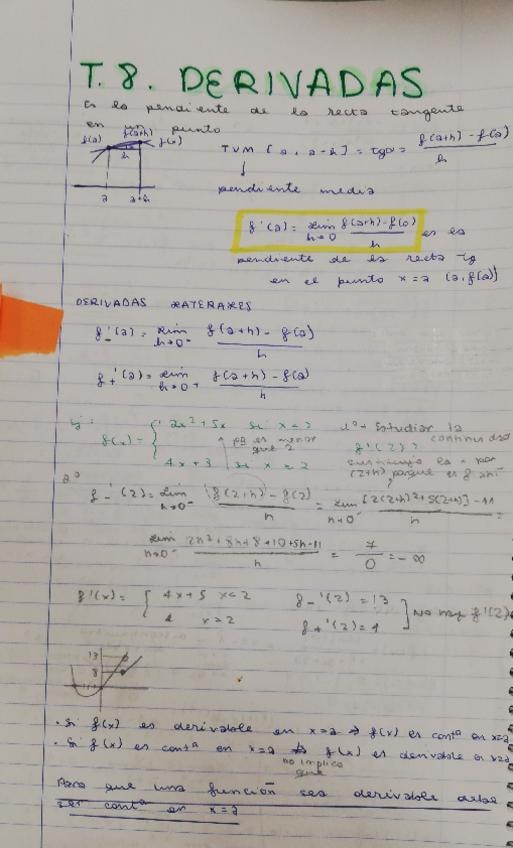 T. 8. DERIVADAS
Es la pendiente de la recta tangente
en un punto
f(a) f(a+h) f(x)
h
a a+h
TVM [a, a-h] = tgα = f(a+h) - f(a) / h
↓
pendiente media
f'(a) = lim h→0 f(a+h) - f(a) / h es la
pendiente de la recta tg
en el punto x=a (a, f(a))
DERIVADAS LATERALES
f-'(a) = lim h→0- f(a+h) - f(a) / h
f+'(a) = lim h→0+ f(a+h) - f(a) / h
Ej:
f(x) = { 2x² + 5x si x < 2
4x + 3 si x ≥ 2
es menor
que 2
1º Estudiar la
continuidad
f'(2)
sustituyo la x por
(2+h) porque es
2º
f-'(2) = lim h→0- f(2+h) - f(2) / h = lim h→0- [2(2+h)² + 5(2+h)] - 11 / h =
lim h→0- 2h² + 8h + 8 + 10 + 5h - 11 / h = 7 / 0 = -∞
f'(x) = { 4x + 5 x < 2
4 x ≥ 2
f-'(2) = 13
f+'(2) = 4
] No hay f'(2)
13
8
· Si f(x) es derivable en x=a ⇒ f(x) es contª en x=a
· Si f(x) es contª en x=a ⇏ f(x) es derivable en x=a
no implica
que
Para que una función sea derivable debe
ser contª en x=a